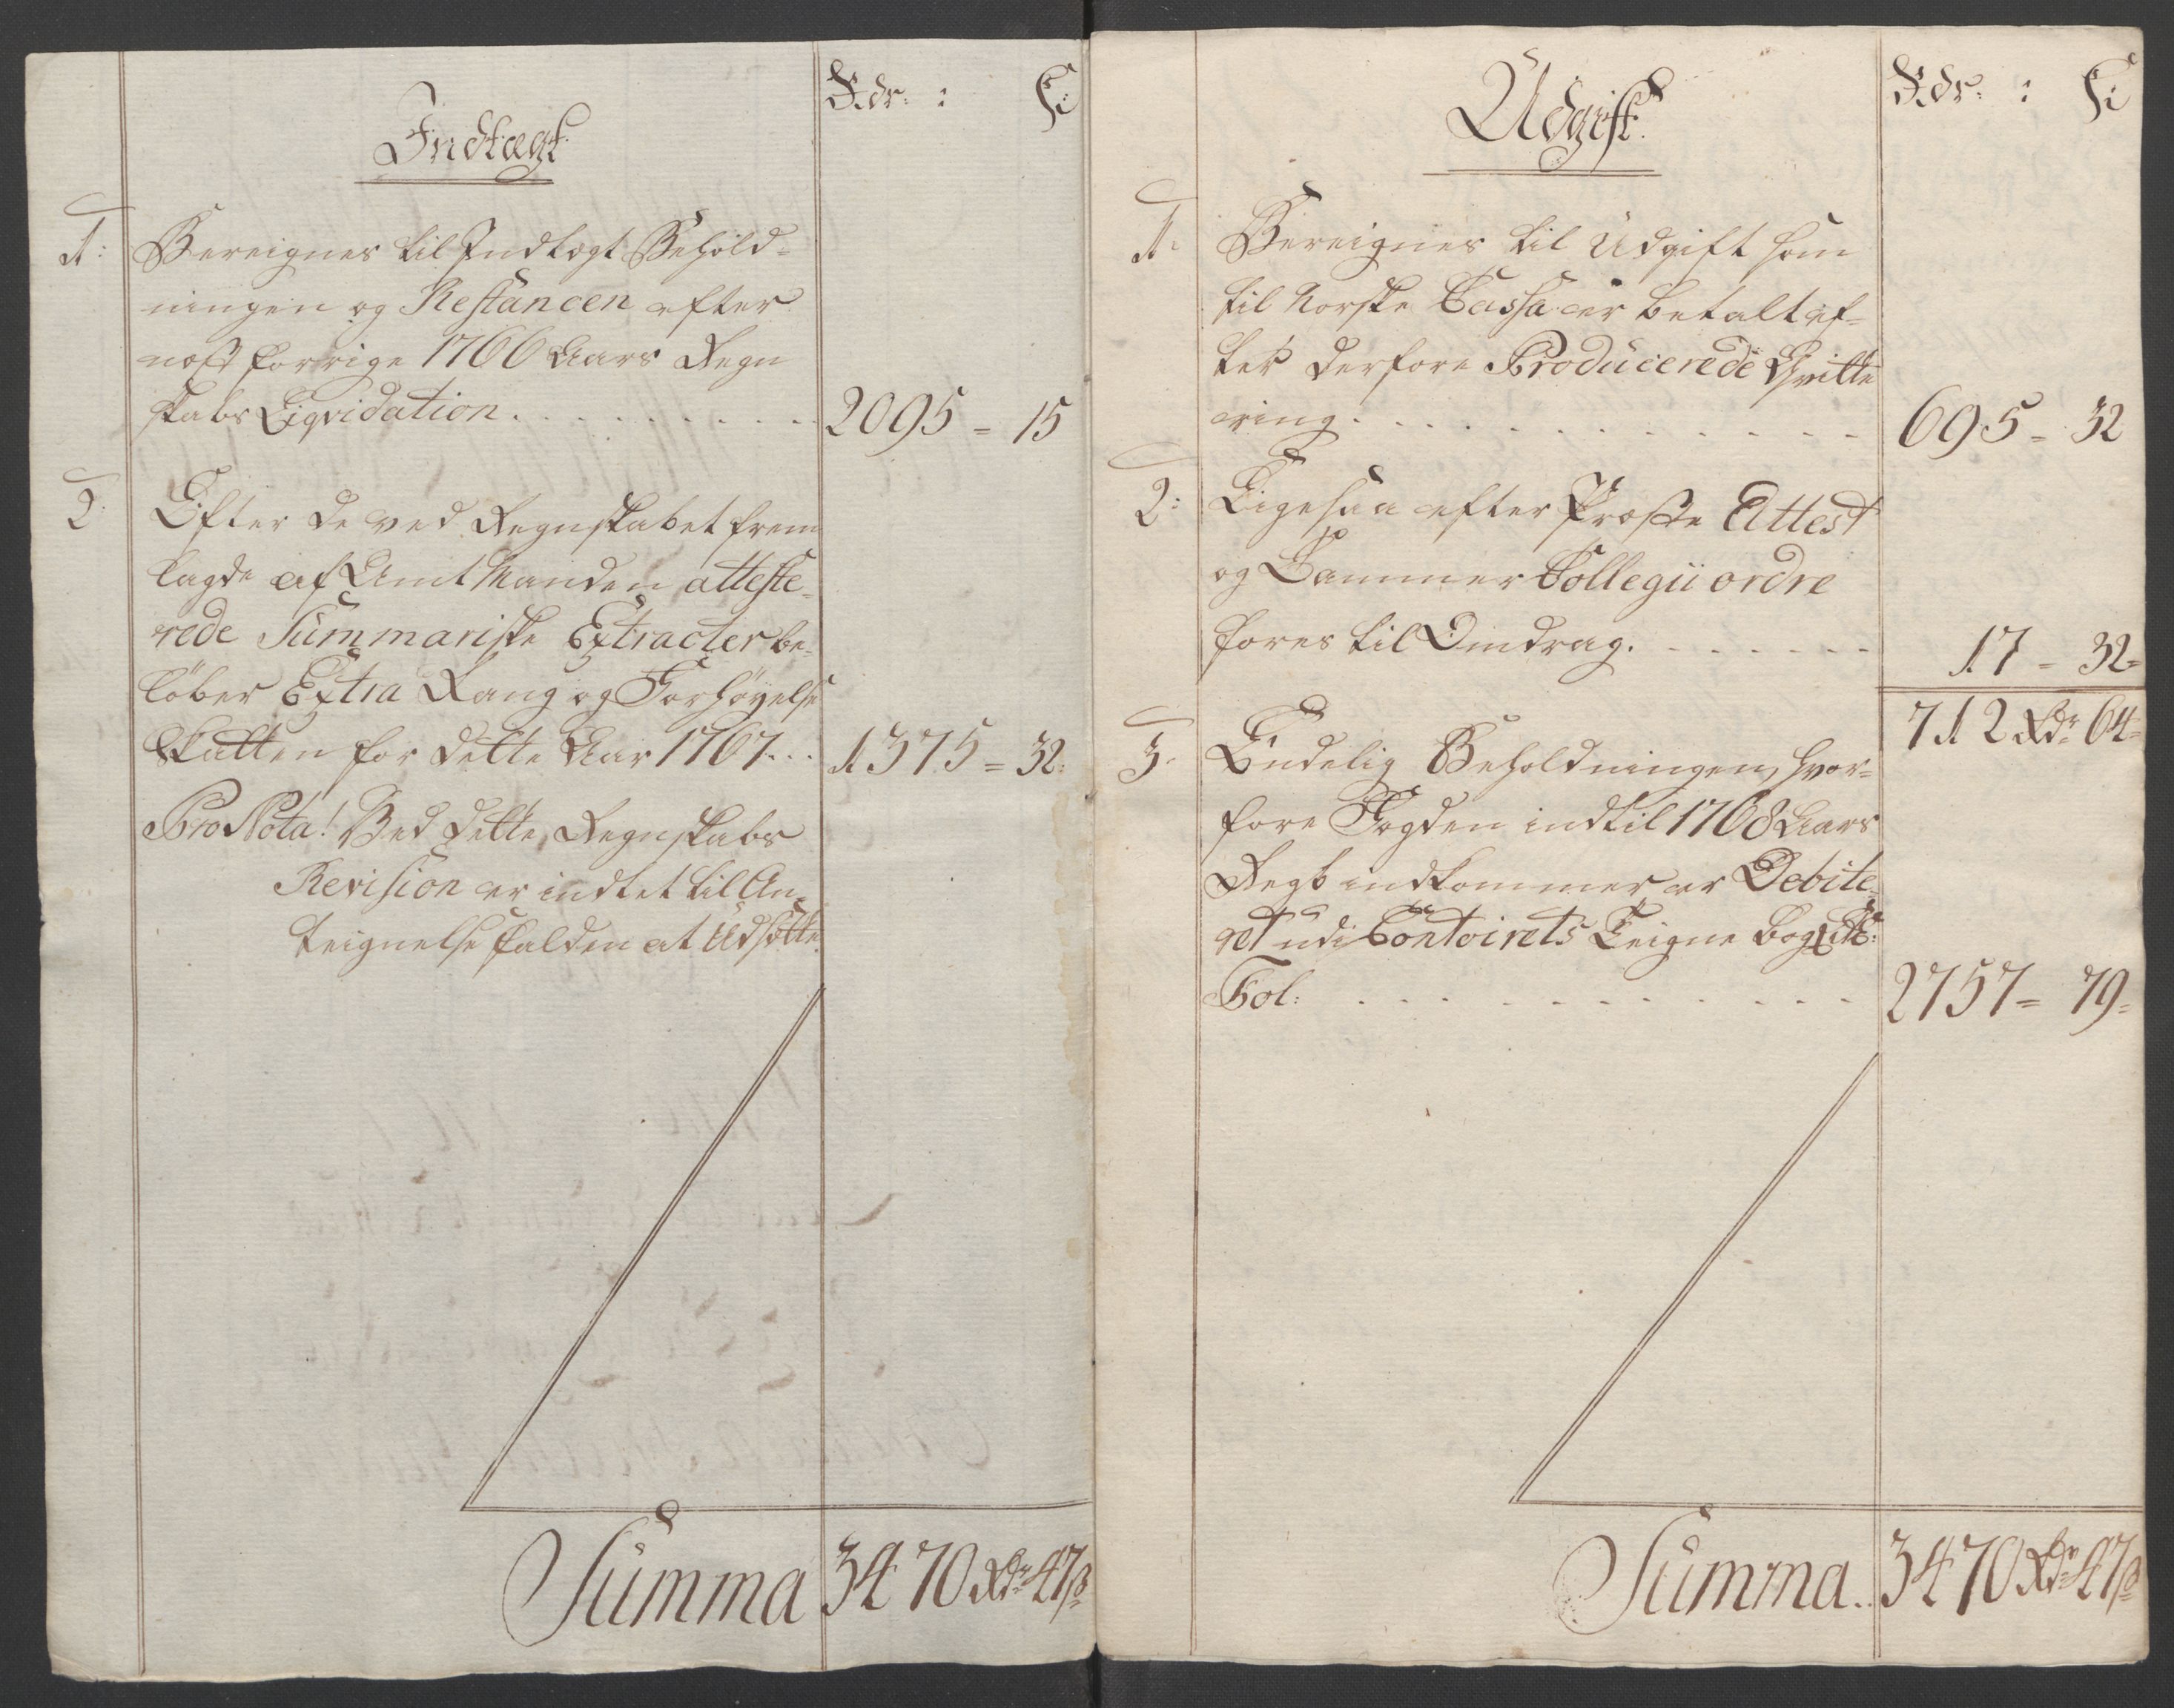 Indtægt
Rdr: : ß:
1: Bereignes til Indtægt Behold-
ningen og Restancen efter
næst forrige 1766 Aars Regn
skabs Liqvidation. . . . . . . . . 2095 = 15
2: Efter de ved Regnskabet frem
lagde af Amtmanden atteste-
rede Summariske Extracter be-
løber Extra Rang og Forhøyelse
Skatten for dette Aar 1767. . . 1375 = 32:
Pro Nota! Ved dette Regnskabs
Revision er indtet til An-
teignelse falden at Udsætte.
Summa 3470 Rdr 47 ß
Udgift.
Rdr: : ß:
1. Bereignes til Udgift som
til Norske Cassa er betalt ef-
ter derfore Producerede Qvitte
ring. . . . . . . . . . . . . . 695 = 32
2: Ligesaa efter Attest
og Cammer Collegii ordre
føres til Omdrag. . . . . . . 17 = 32=
712 Rdr 64=
3. Endelig Beholdningen, hvor-
fore Fogden indtil 1768 Aars
Regb indkommer er Debite-
ret udi Contoirets Teigne bog Litr:
Fol: . . . . . . . . . . . . 2757 = 79=
Summa. . 3470 Rdr 47 ß